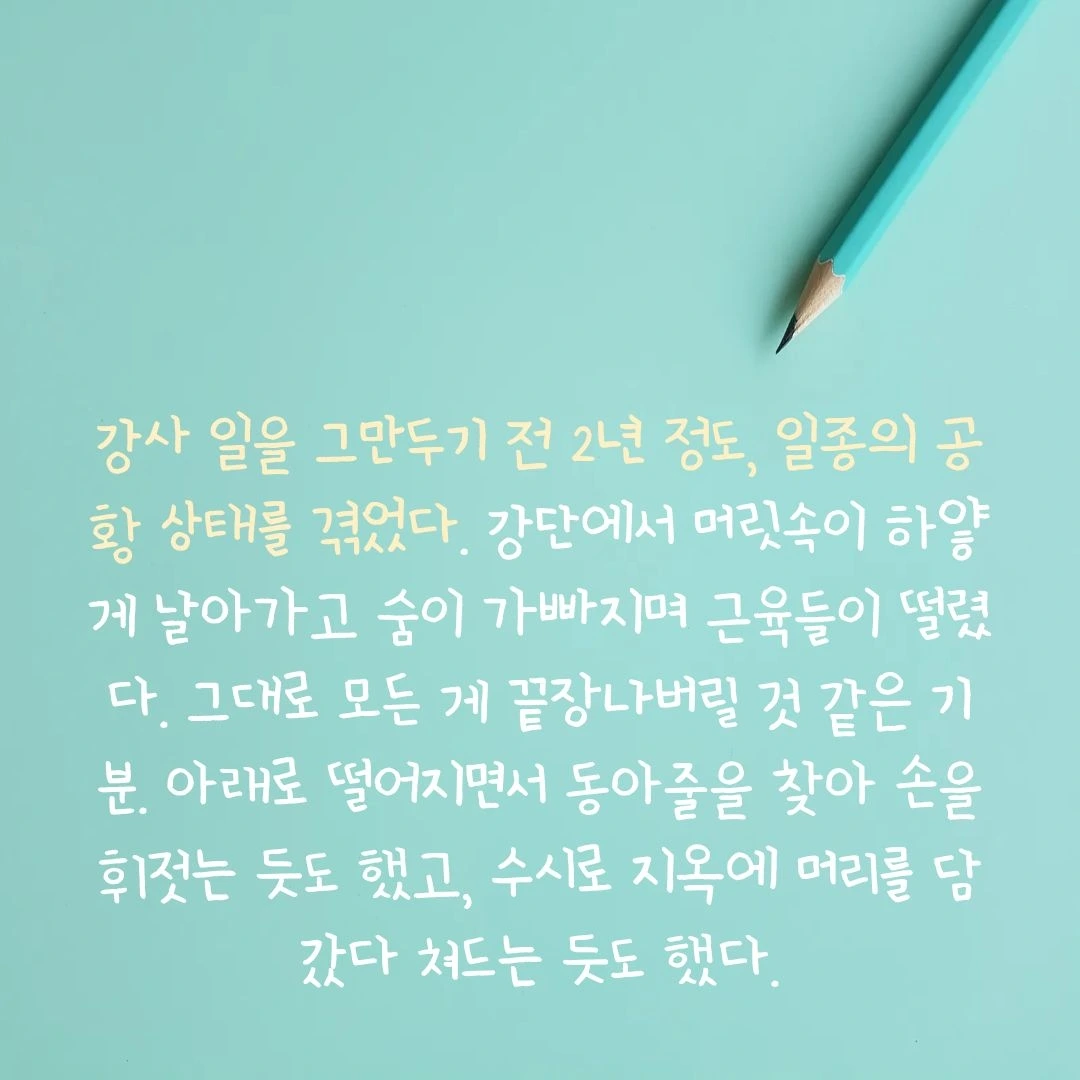 강사 일을 그만두기 전 2년 정도, 일종의 공
황 상태를 겪었다. 강단에서 머릿속이 하얗
게 날아가고 숨이 가빠지며 근육들이 떨렸
다. 그대로 모든 게 끝장나버릴 것 같은 기
분. 아래로 떨어지면서 동아줄을 찾아 손을
휘젓는 듯도 했고, 수시로 지옥에 머리를 담
갔다 쳐드는 듯도 했다.